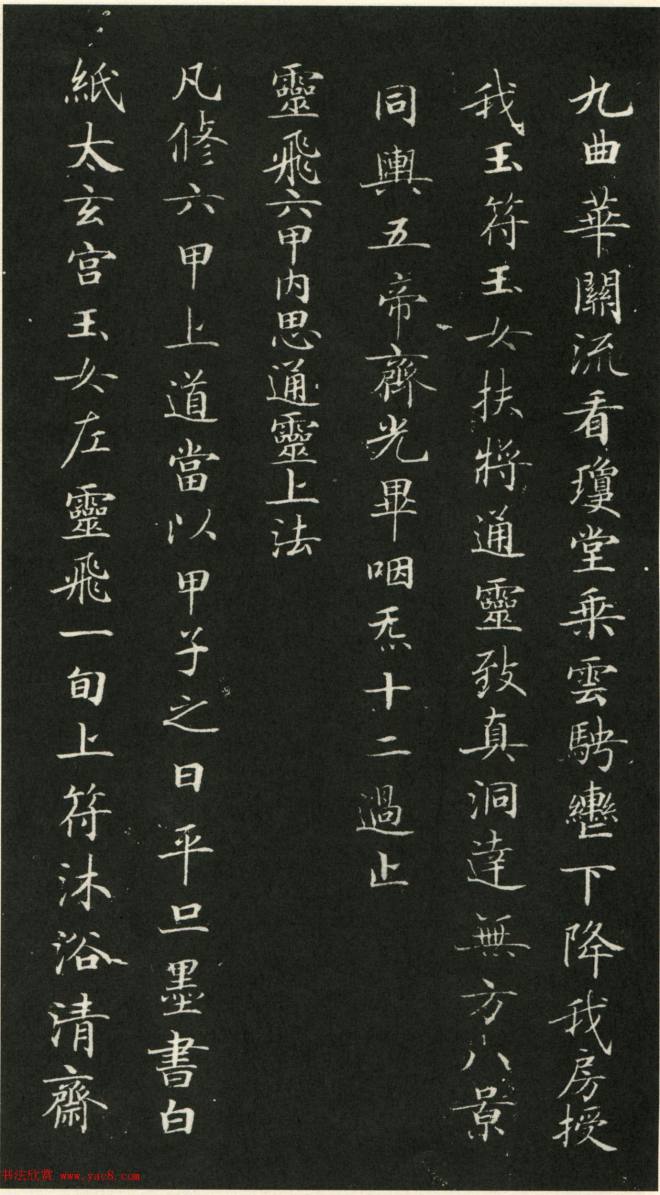 九曲華關流看瓊堂乘雲騁轡下降我房授
我玉符玉女扶將通靈致真洞達無方八景
同輿五帝齊光畢咽炁十二過止
靈飛六甲内思通靈上法
凡修六甲上道當以甲子之日平旦墨書白
紙太玄宫玉女左靈飛一旬上符沐浴清齋
书法欣赏 www.yac8.com